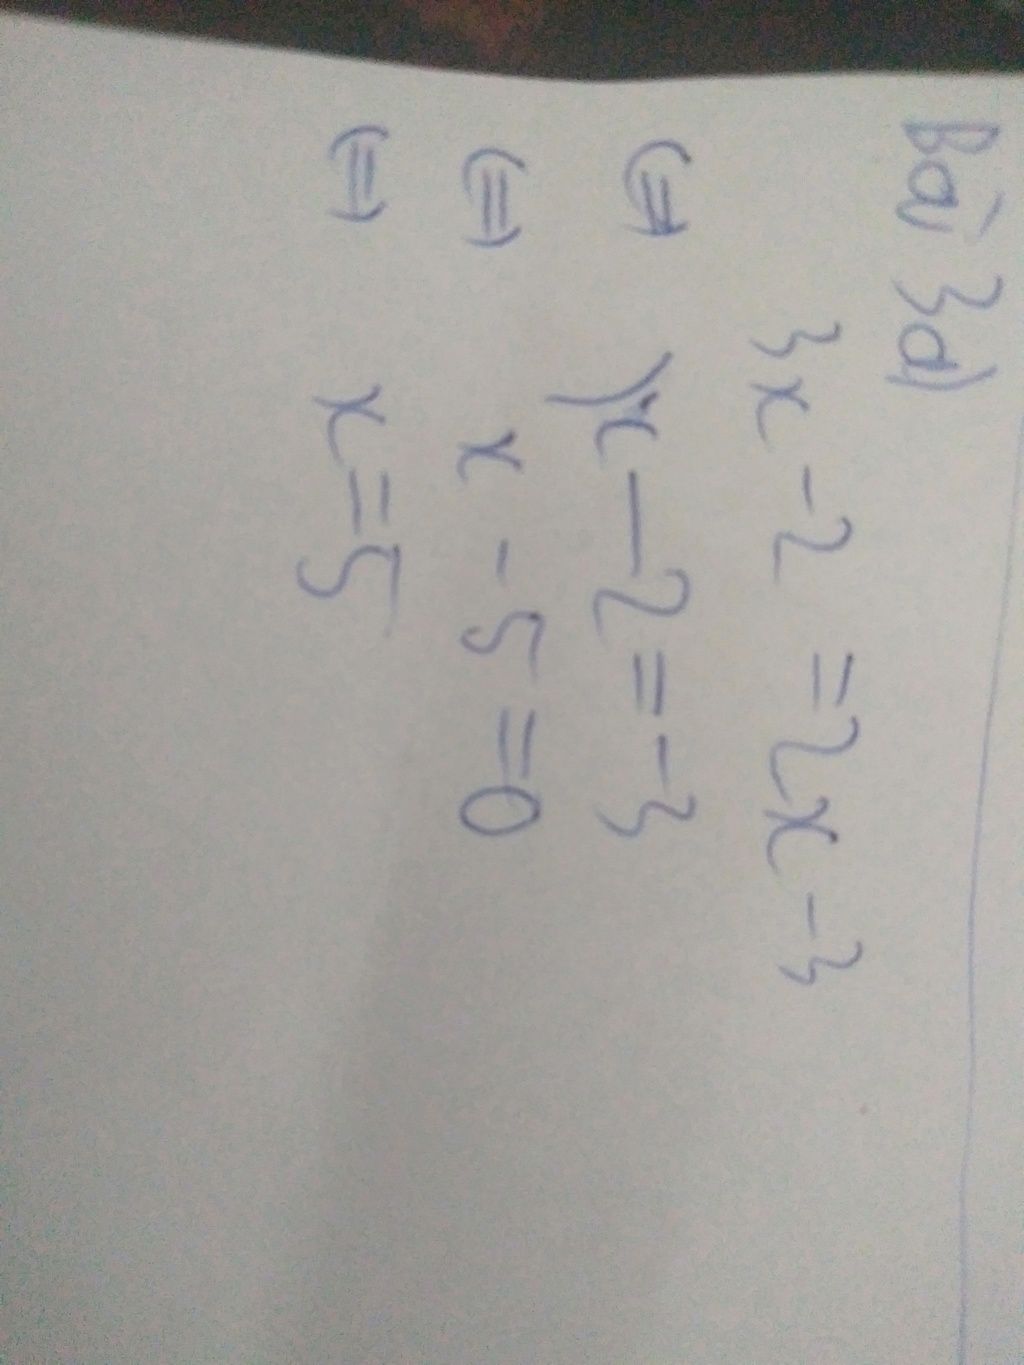 Bài 3d)
3x - 2 = 2x - 3
⇔ x - 2 = -3
⇔ x - 5 = 0
⇔ x = 5